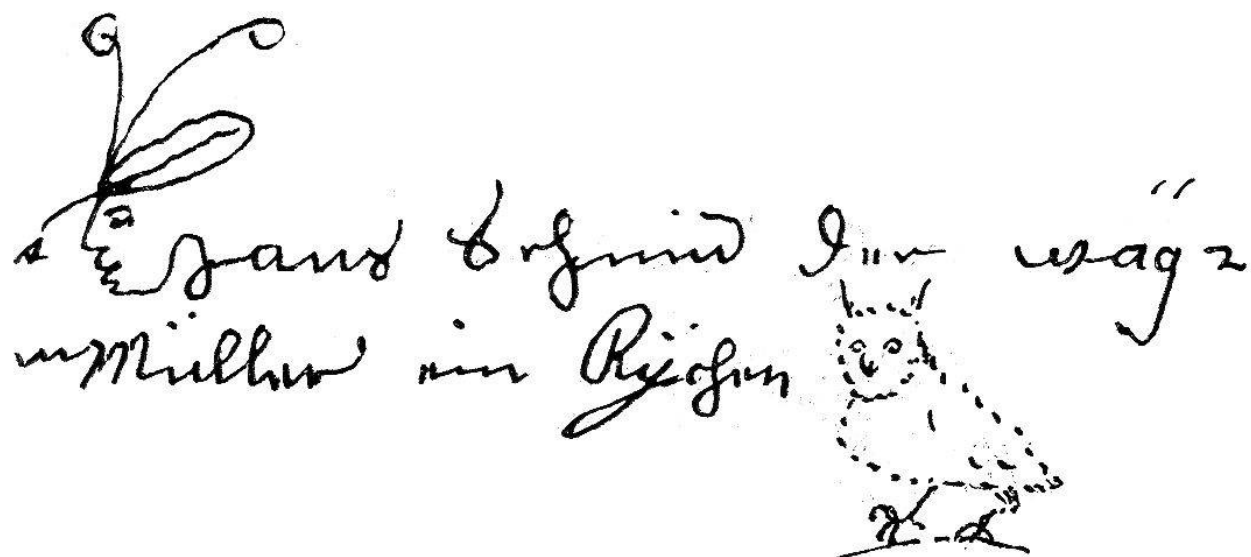 Hans Schmid Der wäg=
Müller in Rÿchen